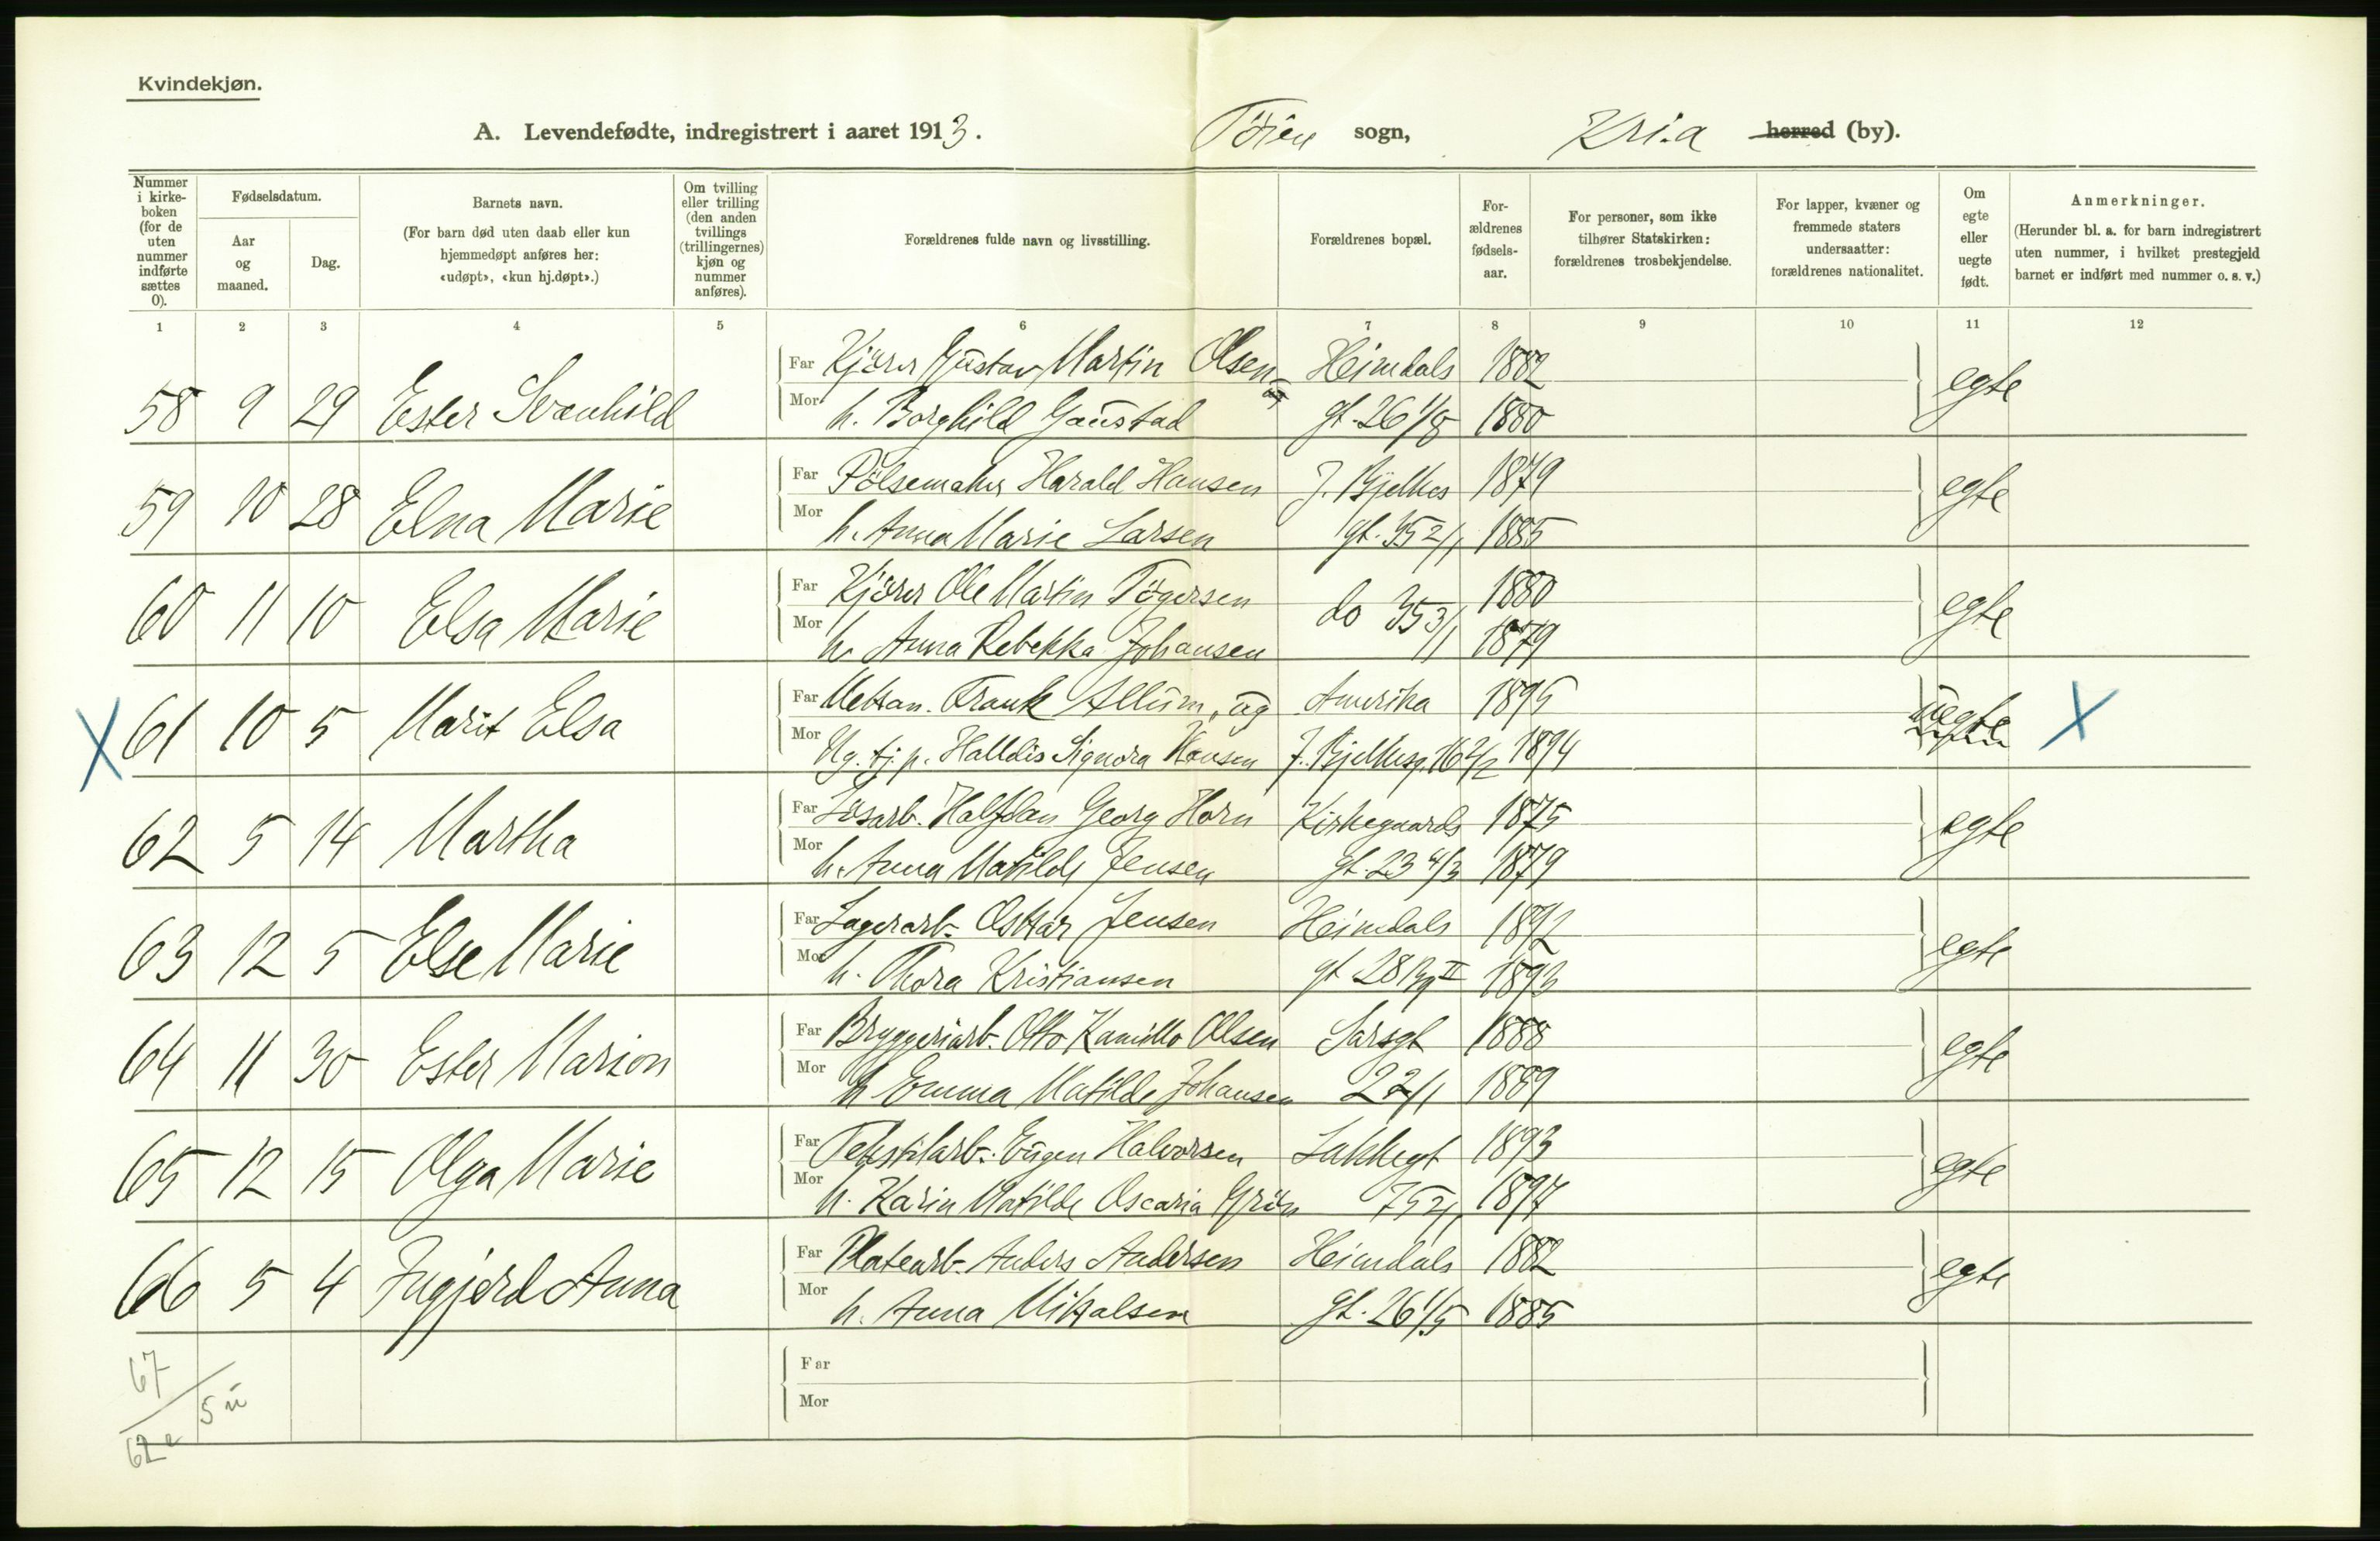 Kvindekjøn.
A. Levendefødte, indregistrert i aaret 1913. Töien sogn, Kria herred (by).
Nummer i kirke-boken (for de uten nummer indførte sættes 0).
Fødselsdatum.
Aar og maaned.
Dag.
Barnets navn.
(For barn død uten daab eller kun hjemmedøpt anføres her: «udøpt», «kun hj.døpt».)
Om tvilling eller trilling (den anden tvillings (trillingernes) kjøn og nummer anføres).
Forældrenes fulde navn og livsstilling.
Forældrenes bopæl.
For-ældrenes fødsels-aar.
For personer, som ikke tilhører Statskirken: forældrenes trosbekjendelse.
For lapper, kvæner og fremmede staters undersaatter: forældrenes nationalitet.
Om egte eller uegte født.
Anmerkninger.
(Herunder bl. a. for barn indregistrert uten nummer, i hvilket prestegjeld barnet er indført med nummer o. s. v.)
1 2 3 4 5 6 7 8 9 10 11 12
58 9 29 Ester Svanhild
Far Kjører Gustav Martin Olsen Heimdals 1882 egte
Mor h. Borghild Gaustad gt. 26 1/8 1880
59 10 28 Elna Marie
Far Pölsemaker Harald Hansen J. Bjelkes 1879 egte
Mor h. Anna Marie Larsen gt. 35 2/1 1885
60 11 10 Elsa Marie
Far Kjörer Ole Martin Tögersen do 35 3/1 1880 egte
Mor h. Anna Rebekka Johansen 1879
X 61 10 5 Marit Elsa
Far Mekan. Frank Allum, ug Amerika 1895 uegte X
Mor Ug. tj. p. Halldis Signora Hansen J. Bjelkesg. 16 2/2 1894
62 5 14 Martha
Far Lösarb. Halfdan Georg Horn Kirkegaards 1875 egte
Mor h. Anna Matilde Jensen gt. 23 4/3 1879
63 12 5 Else Marie
Far Lagerarb. Oskar Jensen Heimdals 1892 egte
Mor h. Thora Kristiansen gt 28 II 1893
64 11 30 Ester Marion
Far Bryggeriarb. Otto Kamillo Olsen Sarsgt 1888 egte
Mor h Emma Matilde Johansen 22/1 1889
65 12 15 Olga Marie
Far Tekstilarb. Eugen Halvorsen Lakkegt 1893 egte
Mor h. Karin Matilde Oscaria 75 2/1 1897
66 5 4 Ingjerd Anna
Far Platearb. Anders Andersen Heimdals 1882 egte
Mor h. Anna Mikalsen gt. 26 1/5 1885
67
5 u
62 e
Far
Mor